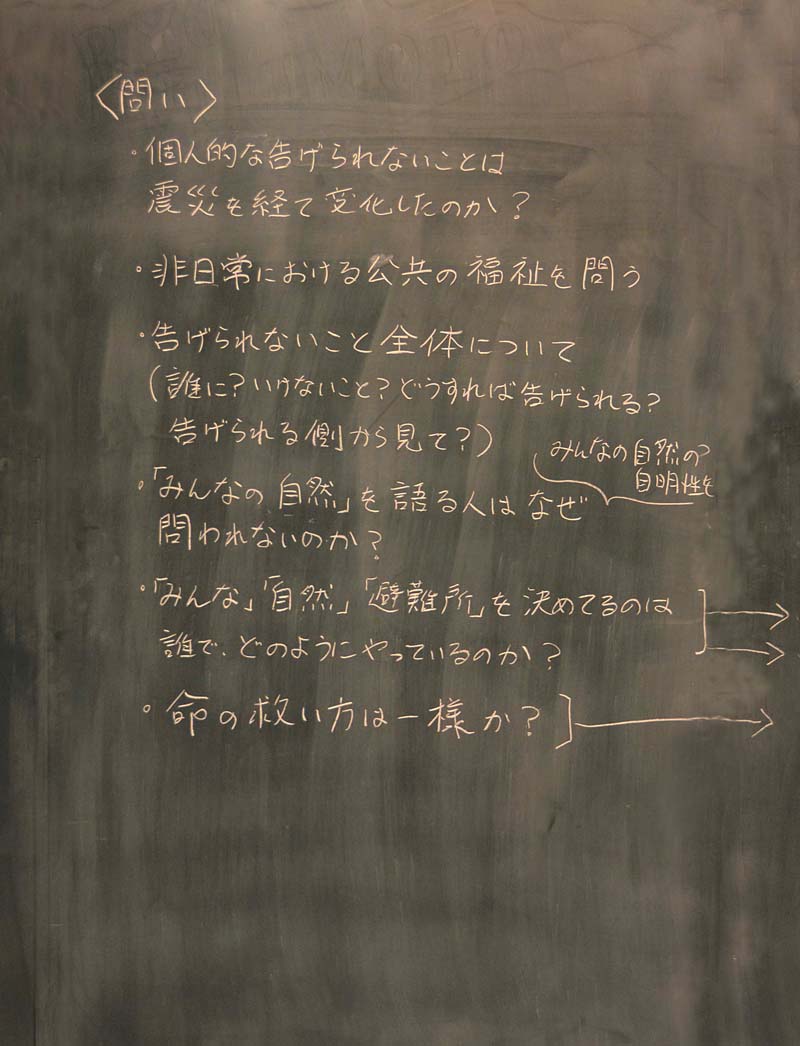 〈問い〉
・個人的な告げられないことは
震災を経て変化したのか？
・非日常における公共の福祉を問う
・告げられないこと全体について
（誰に？いけないこと？どうすれば告げられる？
告げられる側から見て？）
みんなの自然の？
自明性を
・「みんなの自然」を語る人はなぜ
問われないのか？
・「みんな」「自然」「避難所」を決めてるのは
誰で、どのようにやっているのか？
・命の救い方は一様か？